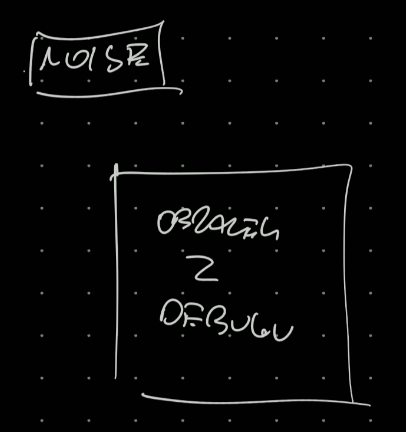 NOISE
OBRAZEK
Z
DEBUGU